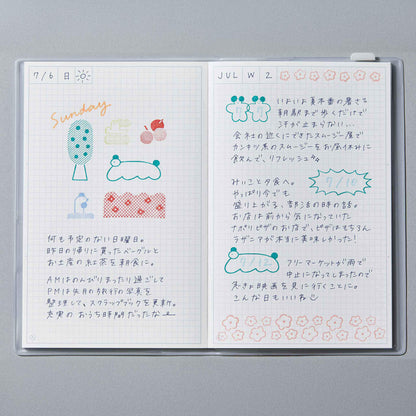 7/6 日
Sunday
何も予定のない日曜日。
昨日の帰りに買ったベーグルと
お土産の紅茶を朝食に。
AMはのんびりまったり過ごして
PMは先月の旅行の写真を
整理して、スクラップブックを更新。
充実のおうち時間だったなー
JUL W 2
いよいよ夏本番の暑さ。
朝駅まで歩くだけで
汗が止まらない...
会社の近くにできたスムージー屋で
カンキツ系のスムージーをお昼休みに
飲んで、リフレッシュ。
みいこと夕食へ。
7/10
やっぱり今でも
盛り上がる、部活の時の話。
お店は前から気になっていた
ナポリピザのお店で、ピザはもちろん
ラザニアが本当に美味しかった!
7/12
フリーマーケットが雨で
中止になってしまったので
急きょ映画を見に行くことに。
こんな日もいいね